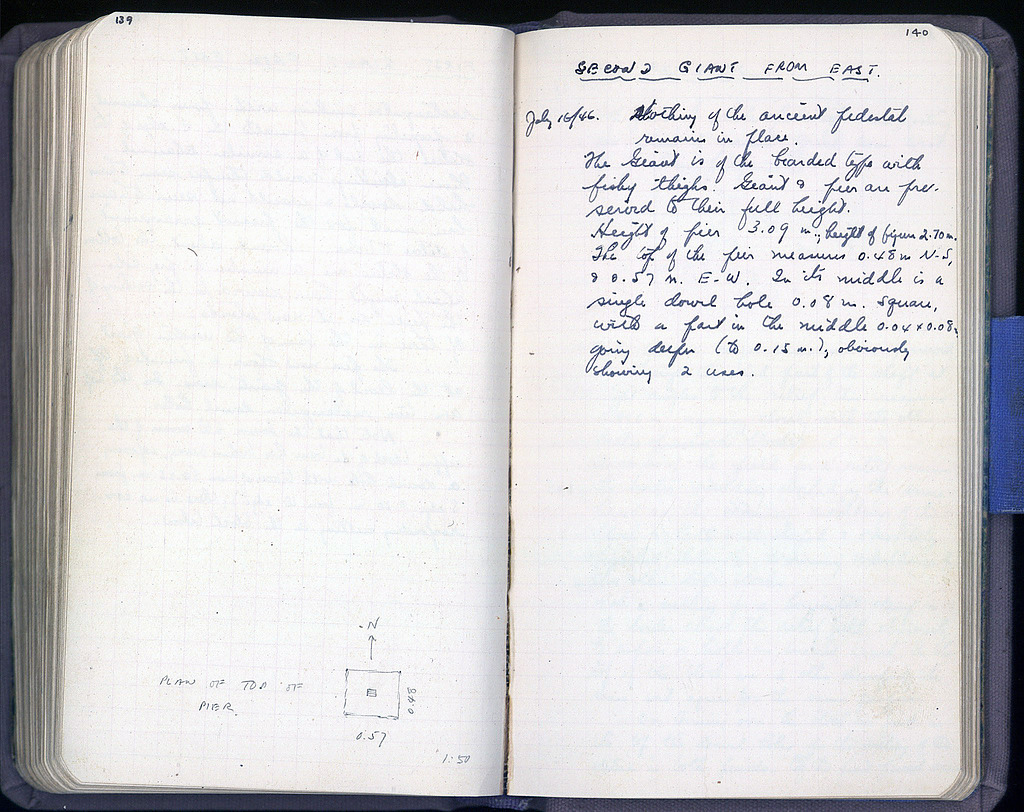 139
N
PLAN OF TOP OF
PIER
0.48
0.57
1:50
140
SECOND GIANT FROM EAST.
July 16/46. Nothing of the ancient pedestal
remains in place.
The Giant is of the bearded type with
fishy thighs. Giant & pier are pre-
served to their full height.
Height of pier 3.09 m.; height of figure 2.70 m.
The top of the pier measures 0.48 m N-S,
& 0.57 m. E-W. In its middle is a
single dowel hole 0.08 m. square,
with a part in the middle 0.04 x 0.08
going deeper (to 0.15 m.), obviously
showing 2 uses.